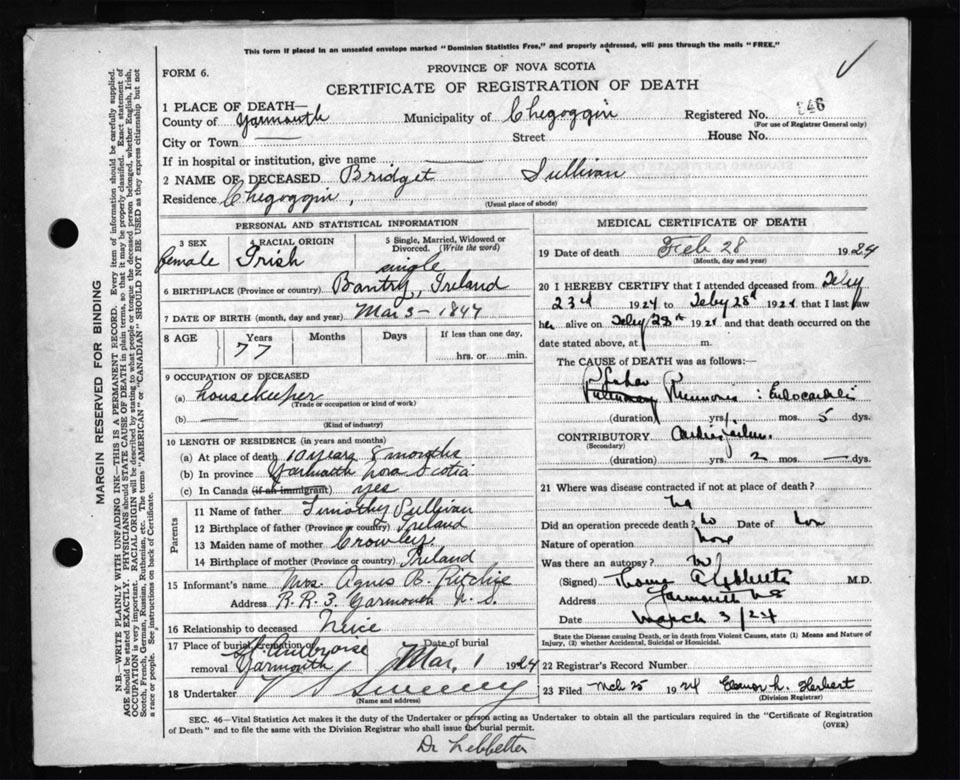 This form if placed in an unsealed envelope marked "Dominion Statistics Free," and properly addressed, will pass through the mails "FREE."
PROVINCE OF NOVA SCOTIA
FORM 6.
CERTIFICATE OF REGISTRATION OF DEATH
1 PLACE OF DEATH—
County of Yarmouth Municipality of Chegoggin Registered No. 246
(For use of Registrar General only)
City or Town Street House No.
If in hospital or institution, give name
2 NAME OF DECEASED Bridget Sullivan
Residence Chegoggin,
(Usual place of abode)
PERSONAL AND STATISTICAL INFORMATION
3 SEX 4 RACIAL ORIGIN 5 Single, Married, Widowed or Divorced. (Write the word)
female Irish single
6 BIRTHPLACE (Province or country) Bantry, Ireland
7 DATE OF BIRTH (month, day and year) Mar 3 - 1847
8 AGE Years Months Days If less than one day,
77 hrs. or min.
9 OCCUPATION OF DECEASED
(a) housekeeper
(Trade or occupation or kind of work)
(b)
(Kind of industry)
10 LENGTH OF RESIDENCE (in years and months)
(a) At place of death 10 years 8 months
(b) In province Yarmouth Nova Scotia
(c) In Canada (if an immigrant) yes
Parents
11 Name of father Timothy Sullivan
12 Birthplace of father (Province or country) Ireland
13 Maiden name of mother Crowley
14 Birthplace of mother (Province or country) Ireland
15 Informant's name Mrs. Agnes B. Ritchie
Address R.R. 3. Yarmouth N. S.
16 Relationship to deceased Neice
17 Place of burial, cremation or removal St Ambrose Yarmouth Date of burial Mar. 1 1924
18 Undertaker V S Sweeny
(Name and address)
MEDICAL CERTIFICATE OF DEATH
19 Date of death Feb 28 1924
(Month, day and year)
20 I HEREBY CERTIFY that I attended deceased from Feby
23d 1924 to Feby 28th 1924 that I last saw
her alive on Feby 28th 1924 and that death occurred on
date stated above, at m.
The CAUSE of DEATH was as follows:—
Lobar
Pulmonary Pneumonia : Endocarditis
(duration) yrs. mos. 5 dys.
CONTRIBUTORY Cardiac failure
(Secondary)
(duration) yrs. 2 mos. — dys.
21 Where was disease contracted if not at place of death?
Did an operation precede death? No Date of
Nature of operation None
Was there an autopsy? No
(Signed) Thomas A Lebbetter M.D.
Address Yarmouth NS
Date March 3/24
State the Disease causing Death, or in death from Violent Causes, state (1) Means and Nature of Injury, (2) whether Accidental, Suicidal or Homicidal.
22 Registrar's Record Number
23 Filed Mch 25 1924 Eleanor L. Herbert
(Division Registrar)
SEC. 46—Vital Statistics Act makes it the duty of the Undertaker or person acting as Undertaker to obtain all the particulars required in the "Certificate of Registration
of Death" and to file the same with the Division Registrar who shall issue the burial permit. (OVER)
Dr Lebbetter
MARGIN RESERVED FOR BINDING
N.B.—WRITE PLAINLY WITH UNFADING INK—THIS IS A PERMANENT RECORD. Every item of information should be carefully supplied.
AGE should be stated EXACTLY. PHYSICIANS should STATE CAUSE OF DEATH in plain terms, so that it may be properly classified. Exact statement of
OCCUPATION is very important. RACIAL ORIGIN will be described by stating to what people or tongue the deceased person belonged, whether English, Irish,
Scotch, French, German, Russian, Ruthenian, etc. The terms "AMERICAN" or "CANADIAN" SHOULD NOT BE USED as they express citizenship but not
a race or people. See instructions on back of Certificate.